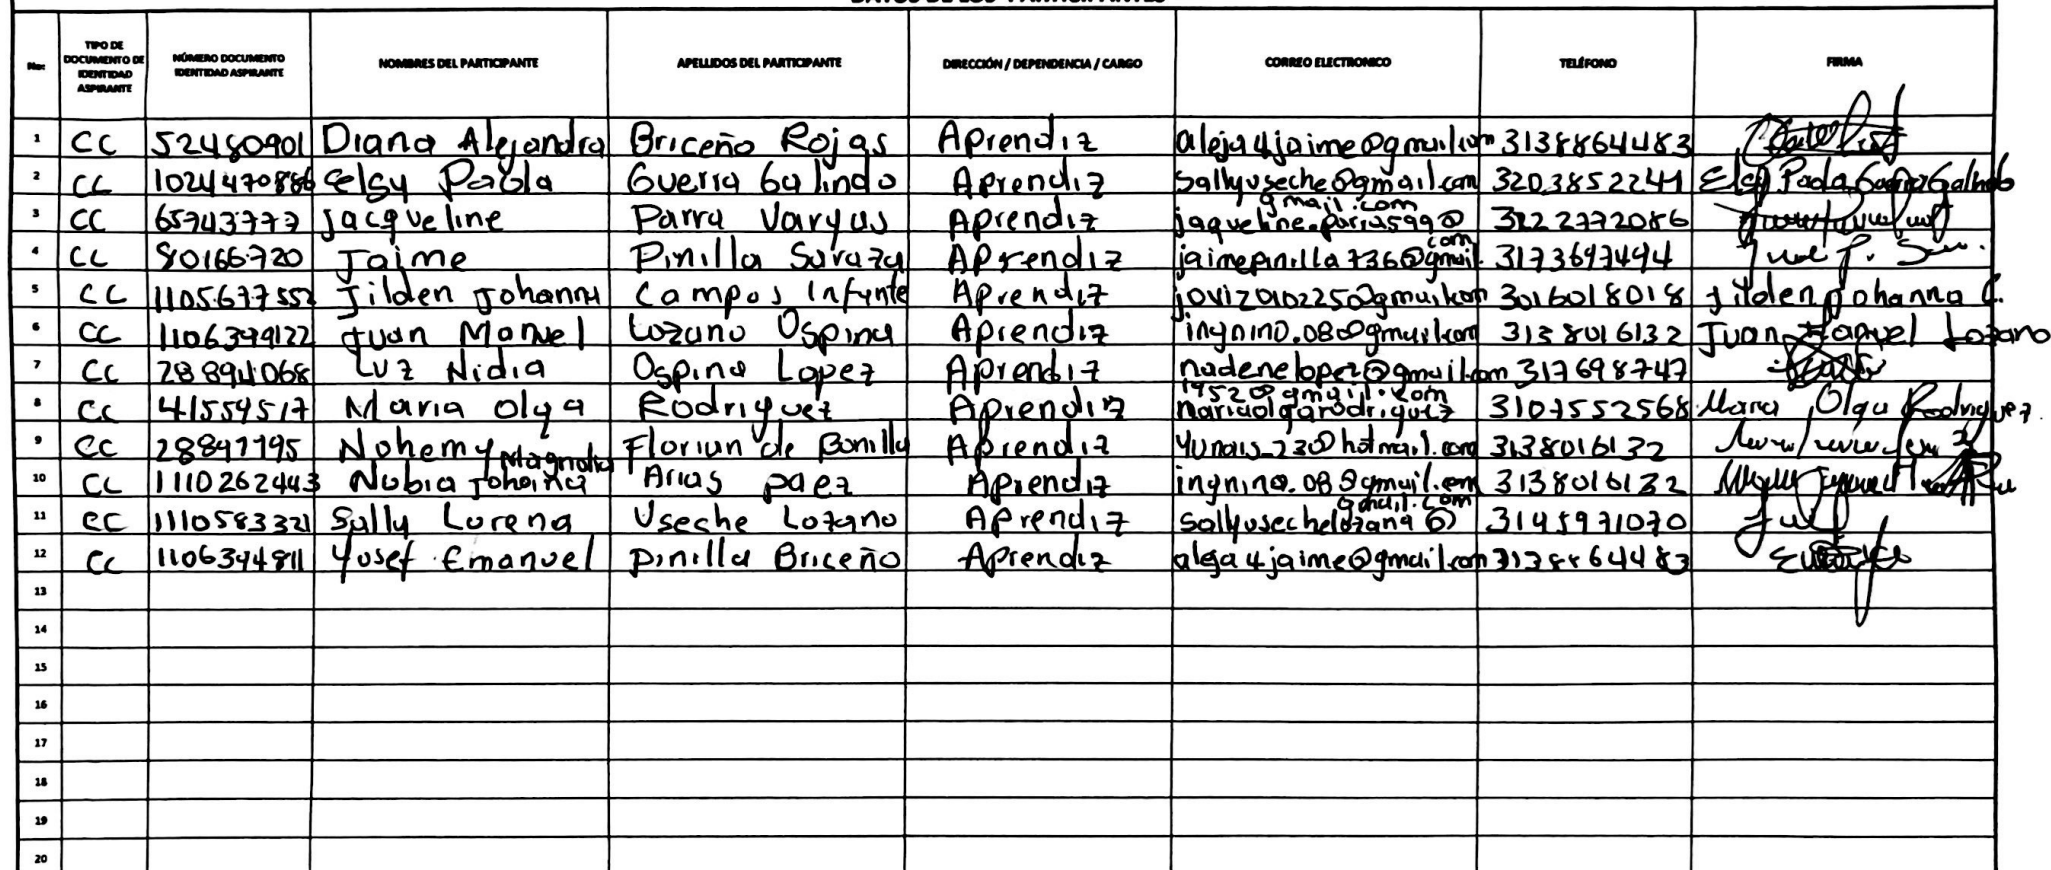 DATOS DE LOS PARTICIPANTES
No: TIPO DE DOCUMENTO DE IDENTIDAD ASPIRANTE NÚMERO DOCUMENTO IDENTIDAD ASPIRANTE NOMBRES DEL PARTICIPANTE APELLIDOS DEL PARTICIPANTE DIRECCIÓN / DEPENDENCIA / CARGO CORREO ELECTRONICO TELÉFONO FIRMA
1 CC 52480901 Diana Alejandra Briceño Rojas Aprendiz aleja4jaime@gmail.com 3138864483
2 CC 1024470886 Celsy Paola Guerra Galindo Aprendiz sallyuseche@gmail.com 3203852241
3 CC 65743777 Jacqueline Parra Vargas Aprendiz jaqueline.parra599@ gmail.com 3222772086
4 CC 80166720 Jaime Pinilla Saraza Aprendiz jaimepinilla736@gmail. com 3173697494
5 CC 1105677552 Jilden Johanna Campos Infante Aprendiz joviz0102250@gmail.com 3016018018 Jilden Johanna C.
6 CC 1106399122 Juan Manuel Lozano Ospina Aprendiz ingnino.08@gmail.com 3138016132 Juan Manuel Lozano
7 CC 28894068 Luz Nidia Ospina Lopez Aprendiz nadenelopez@gmail.com 317698747
8 CC 41559517 Maria Olga Rodriguez Aprendiz mariaolgarodriguez 1952@gmail.com 3107552568 Maria Olga Rodriguez
9 CC 28847195 Nohemy Florian de Bonilla Aprendiz yunais_230@hotmail.com 3138016132
10 CC 1110262443 Nubia Johanna Magnolia Arias paez Aprendiz ingnino.08@gmail.com 3138016132
11 CC 1110583321 Sally Lorena Useche Lozano Aprendiz sallyusechelozano@ gmail.com 3145971070
12 CC 1106394811 Yusef Emanuel Pinilla Briceño Aprendiz aleja4jaime@gmail.com 3138864483
13
14
15
16
17
18
19
20